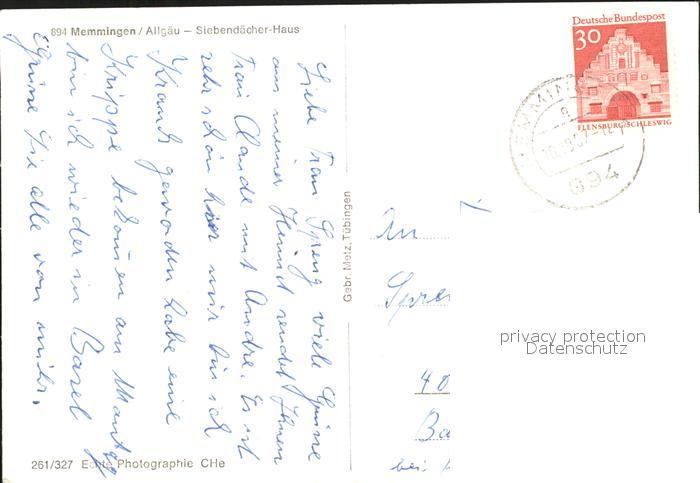 894 Memmingen / Allgäu – Siebendächer-Haus
Liebe Frau Spreng viele Grüsse
aus meiner Heimat sendet Ihnen
Frau Claude mit Andre. Es ist
sehr schön hier nur bin ich
Krank geworden habe eine
Grippe bekomen am Montag
bin ich wieder in Basel
Grüsse Sie alle von mir.
261/327 Echte Photographie CHe
Gebr. Metz, Tübingen
Deutsche Bundespost
30
FLENSBURG/SCHLESWIG
MEMMIN
894
An
Spre
40
Ba
bei
privacy protection
Datenschutz